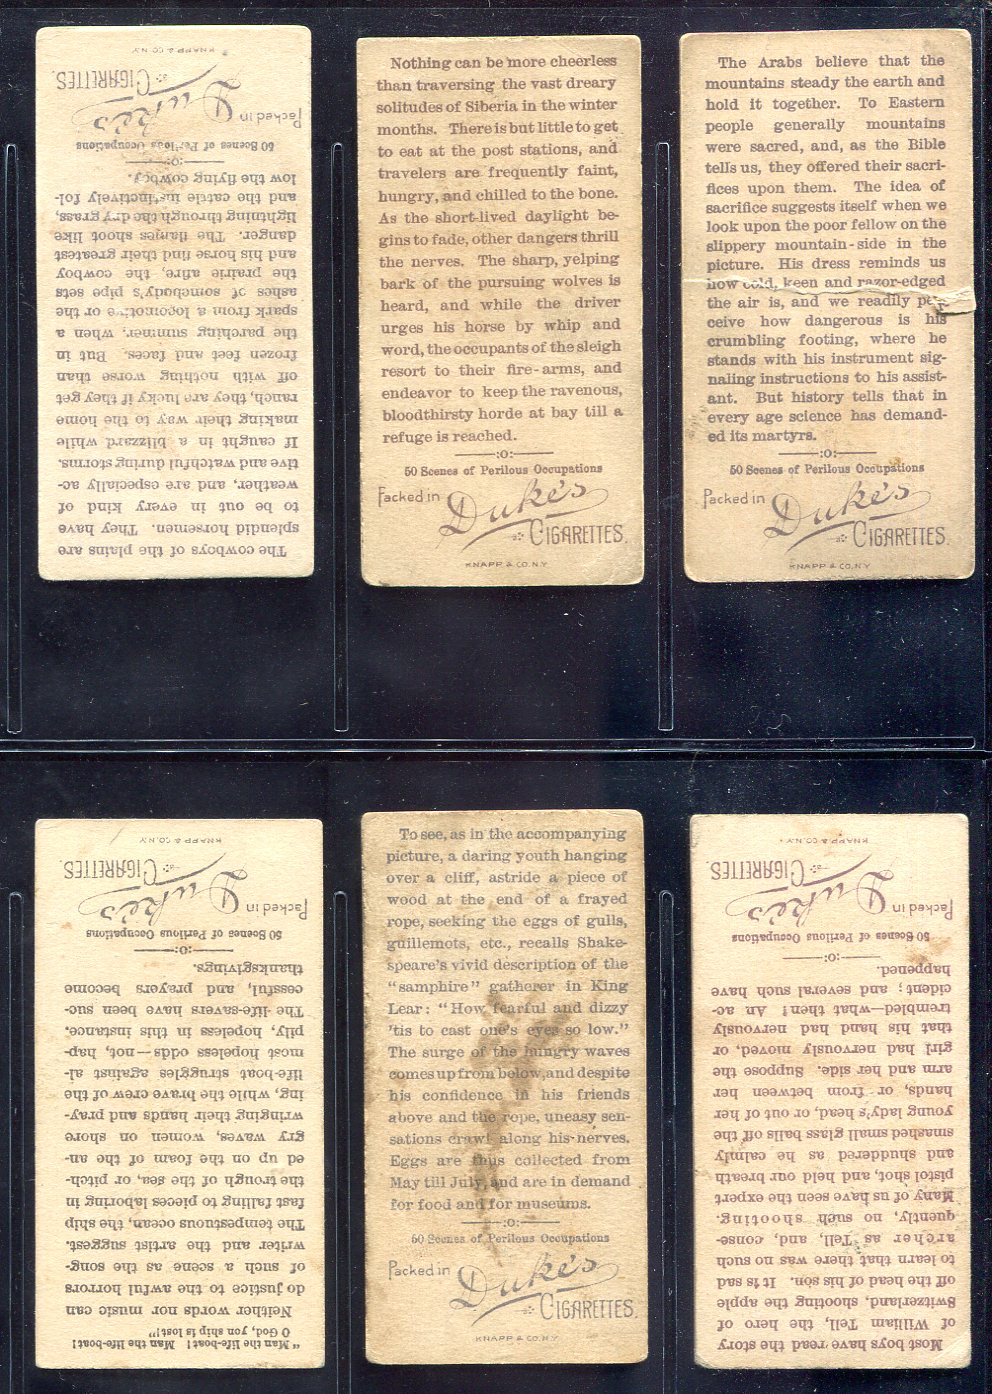 The cowboys of the plains are
splendid horsemen. They have
to be out in every kind of
weather, and are especially ac-
tive and watchful during storms.
If caught in a blizzard while
making their way to the home
ranch, they are lucky if they get
off with nothing worse than
frozen feet and faces. But in
the parching summer, when a
spark from a locomotive or the
ashes of somebody's pipe sets
the prairie afire, the cowboy
and his horse find their greatest
danger. The flames shoot like
lightning through the dry grass,
and the cattle instinctively fol-
low the flying cowboy.
:o:
50 Scenes of Perilous Occupations
Packed in Duke's
CIGARETTES.
KNAPP & CO. N.Y.
Nothing can be more cheerless
than traversing the vast dreary
solitudes of Siberia in the winter
months. There is but little to get
to eat at the post stations, and
travelers are frequently faint,
hungry, and chilled to the bone.
As the short-lived daylight be-
gins to fade, other dangers thrill
the nerves. The sharp, yelping
bark of the pursuing wolves is
heard, and while the driver
urges his horse by whip and
word, the occupants of the sleigh
resort to their fire-arms, and
endeavor to keep the ravenous,
bloodthirsty horde at bay till a
refuge is reached.
:o:
50 Scenes of Perilous Occupations
Packed in Duke's
CIGARETTES.
KNAPP & CO. N.Y.
The Arabs believe that the
mountains steady the earth and
hold it together. To Eastern
people generally mountains
were sacred, and, as the Bible
tells us, they offered their sacri-
fices upon them. The idea of
sacrifice suggests itself when we
look upon the poor fellow on the
slippery mountain-side in the
picture. His dress reminds us
how cold, keen and razor-edged
the air is, and we readily per-
ceive how dangerous is his
crumbling footing, where he
stands with his instrument sig-
naling instructions to his assist-
ant. But history tells that in
every age science has demand-
ed its martyrs.
:o:
50 Scenes of Perilous Occupations
Packed in Duke's
CIGARETTES.
KNAPP & CO. N.Y.
"Man the life-boat! Man the life-boat!
O God, yon ship is lost!"
Neither words nor music can
do justice to the awful horrors
of such a scene as the song-
writer and the artist suggest.
The tempestuous ocean, the ship
fast falling to pieces laboring in
the trough of the sea, or pitch-
ed up on the foam of the an-
gry waves, women on shore
wringing their hands and pray-
ing, while the brave crew of the
life-boat struggles against al-
most hopeless odds—not, hap-
pily, hopeless in this instance.
The life-savers have been suc-
cessful, and prayers become
thanksgivings.
:o:
50 Scenes of Perilous Occupations
Packed in Duke's
CIGARETTES.
KNAPP & CO. N.Y.
To see, as in the accompanying
picture, a daring youth hanging
over a cliff, astride a piece of
wood at the end of a frayed
rope, seeking the eggs of gulls,
guillemots, etc., recalls Shake-
speare's vivid description of the
"samphire" gatherer in King
Lear: "How fearful and dizzy
'tis to cast one's eyes so low."
The surge of the hungry waves
comes up from below, and despite
his confidence in his friends
above and the rope, uneasy sen-
sations crawl along his nerves.
Eggs are thus collected from
May till July, and are in demand
for food and for museums.
:o:
50 Scenes of Perilous Occupations
Packed in Duke's
CIGARETTES.
KNAPP & CO. N.Y.
Most boys have read the story
of William Tell, the hero of
Switzerland, shooting the apple
off the head of his son. It is sad
to learn that there was no such
archer as Tell, and, conse-
quently, no such shooting.
Many of us have seen the expert
pistol shot, and held our breath
and shuddered as he calmly
smashed small glass balls off the
young lady's head, or out of her
hands, or from between her
arm and her side. Suppose the
girl had nervously moved, or
that his hand had nervously
trembled—what then? An ac-
cident; and several such have
happened.
:o:
50 Scenes of Perilous Occupations
Packed in Duke's
CIGARETTES.
KNAPP & CO. N.Y.